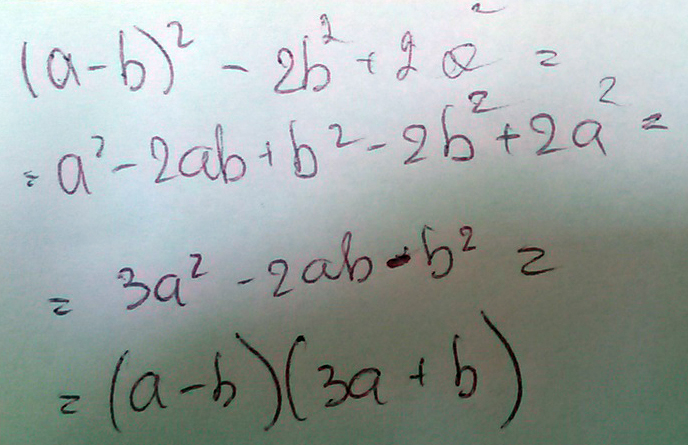 (a-b)² - 2b² + 2a² =
= a² - 2ab + b² - 2b² + 2a² =
= 3a² - 2ab - b² =
= (a-b)(3a+b)